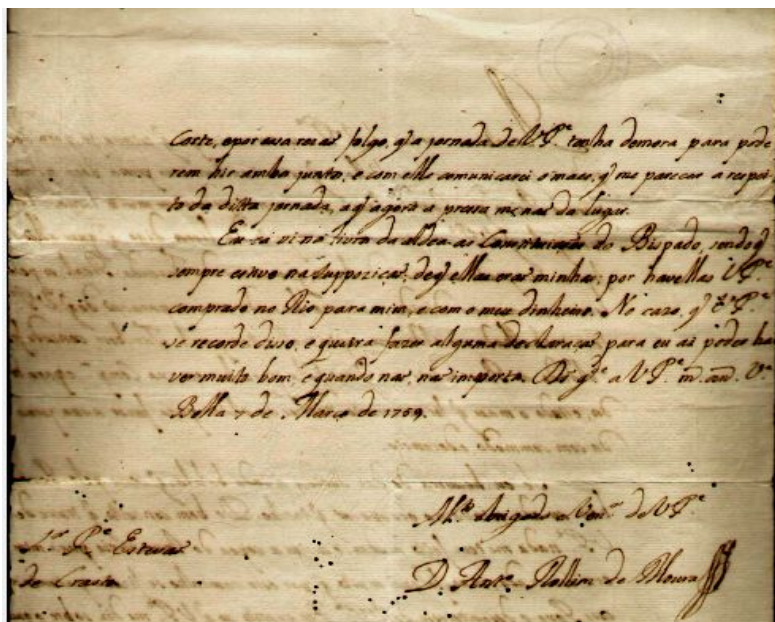 Corte, e por essa rezaõ folgo, q̃ a jornada de V P.e tenha demora para pode
rem hir ambas junto, e com elle comunicarei o mais, q̃ me parecer a respei
to da ditta jornada, a q̃ agora a pressa me naõ da lugar.
Eu cá vi na livro da aldea as Constituições do Bispado, sendo q̃
sempre estive na supposiçaõ, de q̃ ellas eraõ minhas, por havellas V P.e
comprado no Rio para mim, e com o meu dinheiro. No cazo, q̃ P.e
se recorde disso, e queira fazer alguma declaraçaõ para eu as poder ha
ver muito bom, e quando naõ, naõ importa. D.s g.e a V P.e m. an. V.a
Bella 7 de Março de 1759.
M.to Obrigado e Ven.or de V P.e
P.e Estevaõ
de Crasto
D Ant.o Rollim de Moura